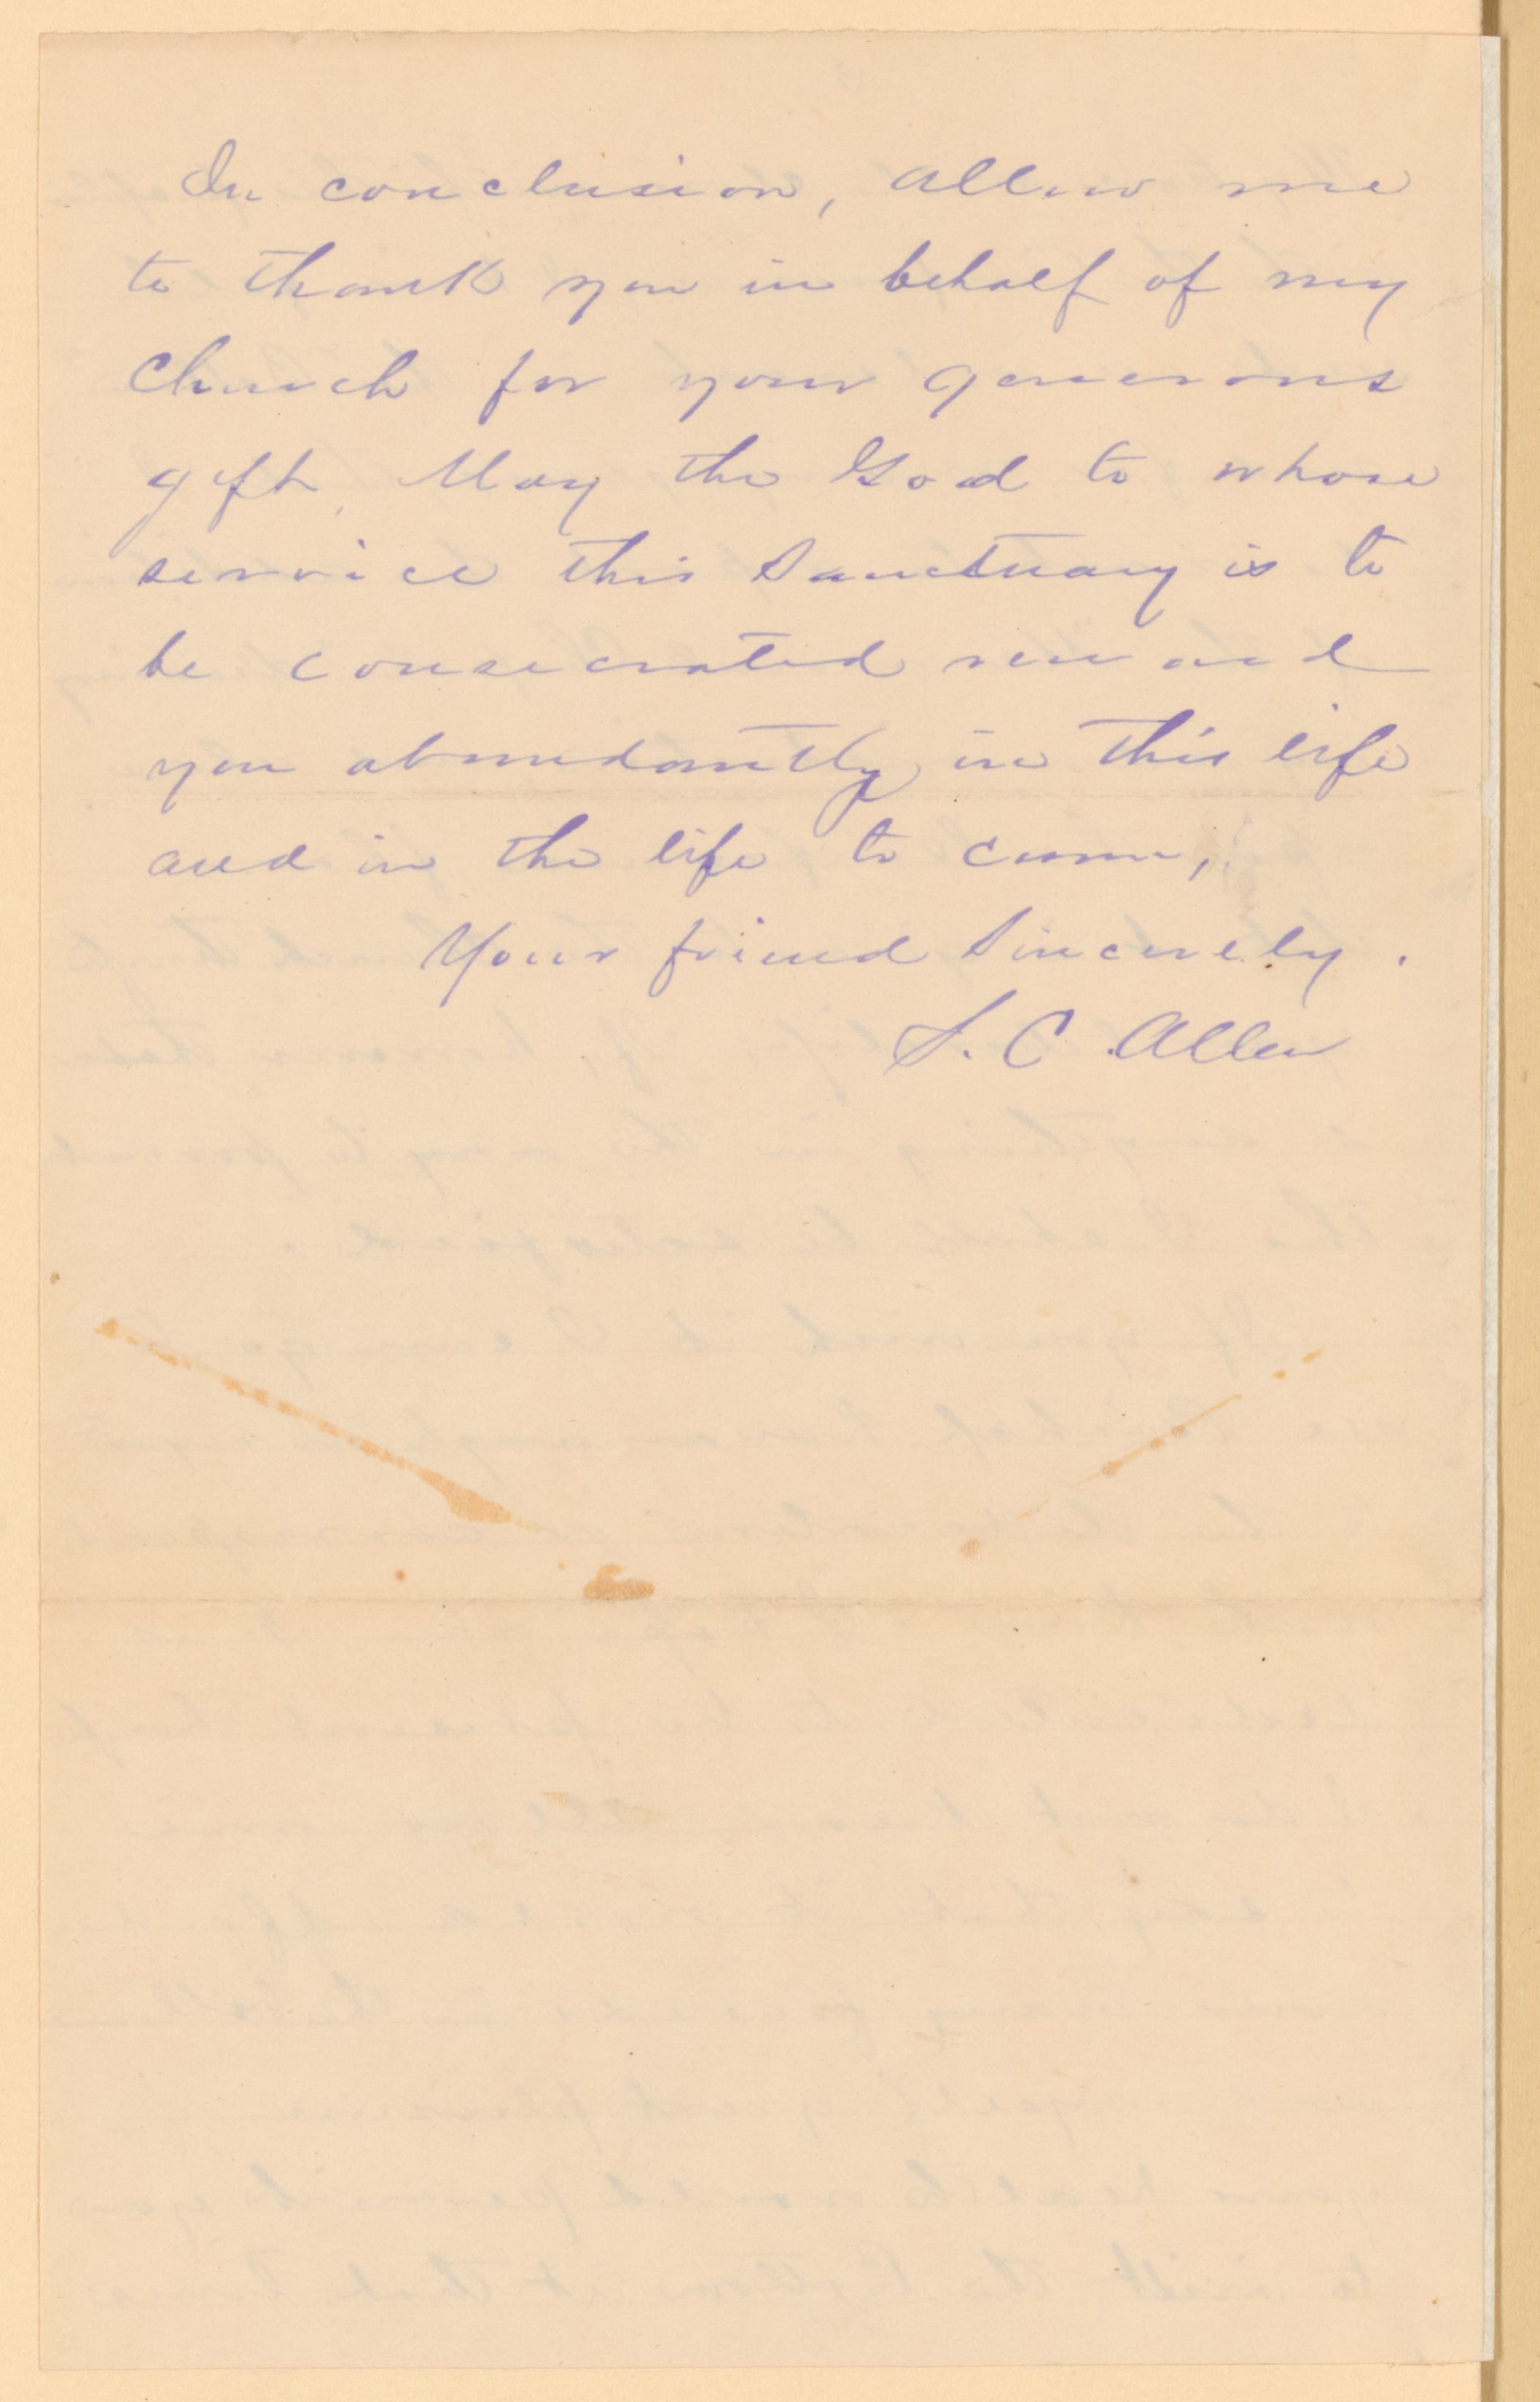 In conclusion, allow me
to thank you in behalf of my
Church for your generous
gift. May the God to whose
service this Sanctuary is to
be consecrated reward
you abundantly in this life
and in the life to come,
Your friend Sincerely.
S. C. Allen